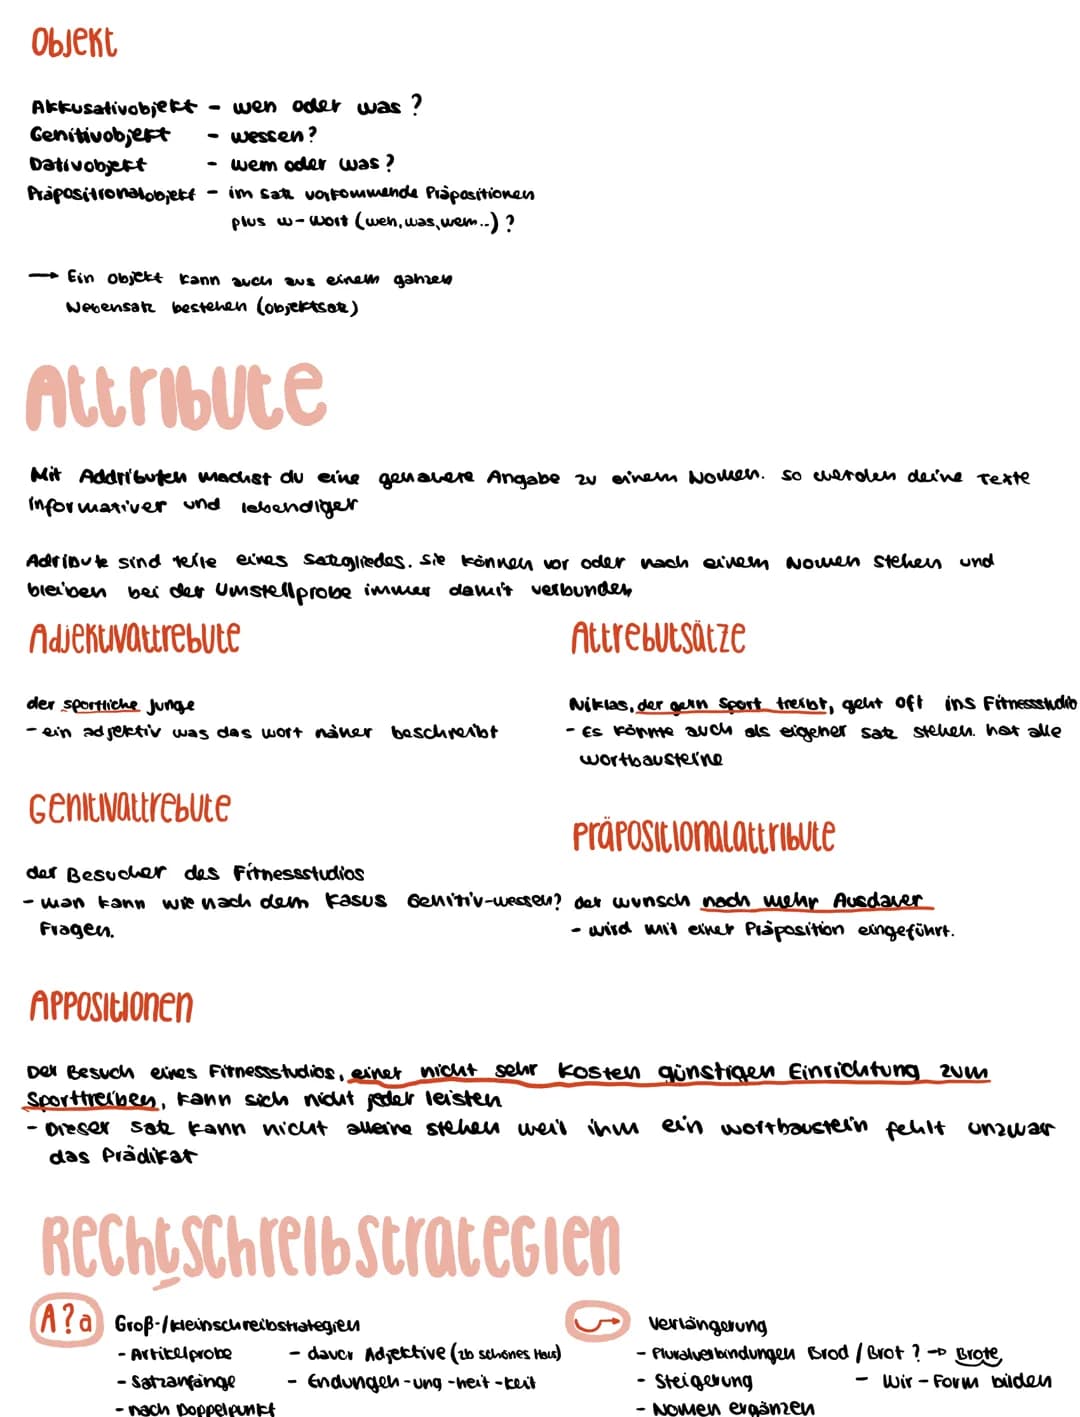 Objekt
Akkusativobjekt - wen oder was?
Genitivobjekt - wessen?
Dativobjekt - wem oder was?
Präpositionalobjekt - im Satz vorkommende Präpositionen
plus w-Wort (wen, was, wem..)?
→ Ein Objekt kann auch aus einem ganzen
Nebensatz bestehen (Objektsatz)
Attribute
Mit Addributen machst du eine genauere Angabe zu einem Nomen. so werden deine Texte
Informativer und lebendiger
Adribute sind teile eines Satzgliedes. Sie können vor oder nach einem Nomen stehen und
bleiben bei der Umstellprobe immer damit verbunden
Adjektivattrebute
der sportliche Junge
- ein adjektiv was das wort näher beschreibt
Attrebutsätze
Niklas, der gern Sport treibt, geht oft ins Fitnessstudio
- Es könnte auch als eigener satz stehen. hat alle
wortbausteine
Genitivattrebute
der Besucher des Fitnessstudios
- man kann wie nach dem Kasus Genitiv-wessen?
Fragen.
Präpositionalattribute
der wunsch nach mehr Ausdauer
- wird mit einer Präposition eingeführt.
Appositionen
Der Besuch eines Fitnessstudios, einer nicht sehr kosten günstigen Einrichtung zum
Sporttreiben, kann sich nicht jeder leisten
- Dieser satz kann nicht alleine stehen weil ihm ein wortbaustein fehlt unzwar
das Prädikat
Rechtschreibstrategien
A?a Groß-/kleinschreibstrategien
- Artikelprobe - davor Adjektive (zb schönes Haus)
- Satzanfänge - Endungen -ung -heit -keit
- nach Doppelpunkt
Verlängerung
- Pluralverbindungen Brod / Brot? → Brote
- Steigerung - Wir-Form bilden
- Nomen ergänzen